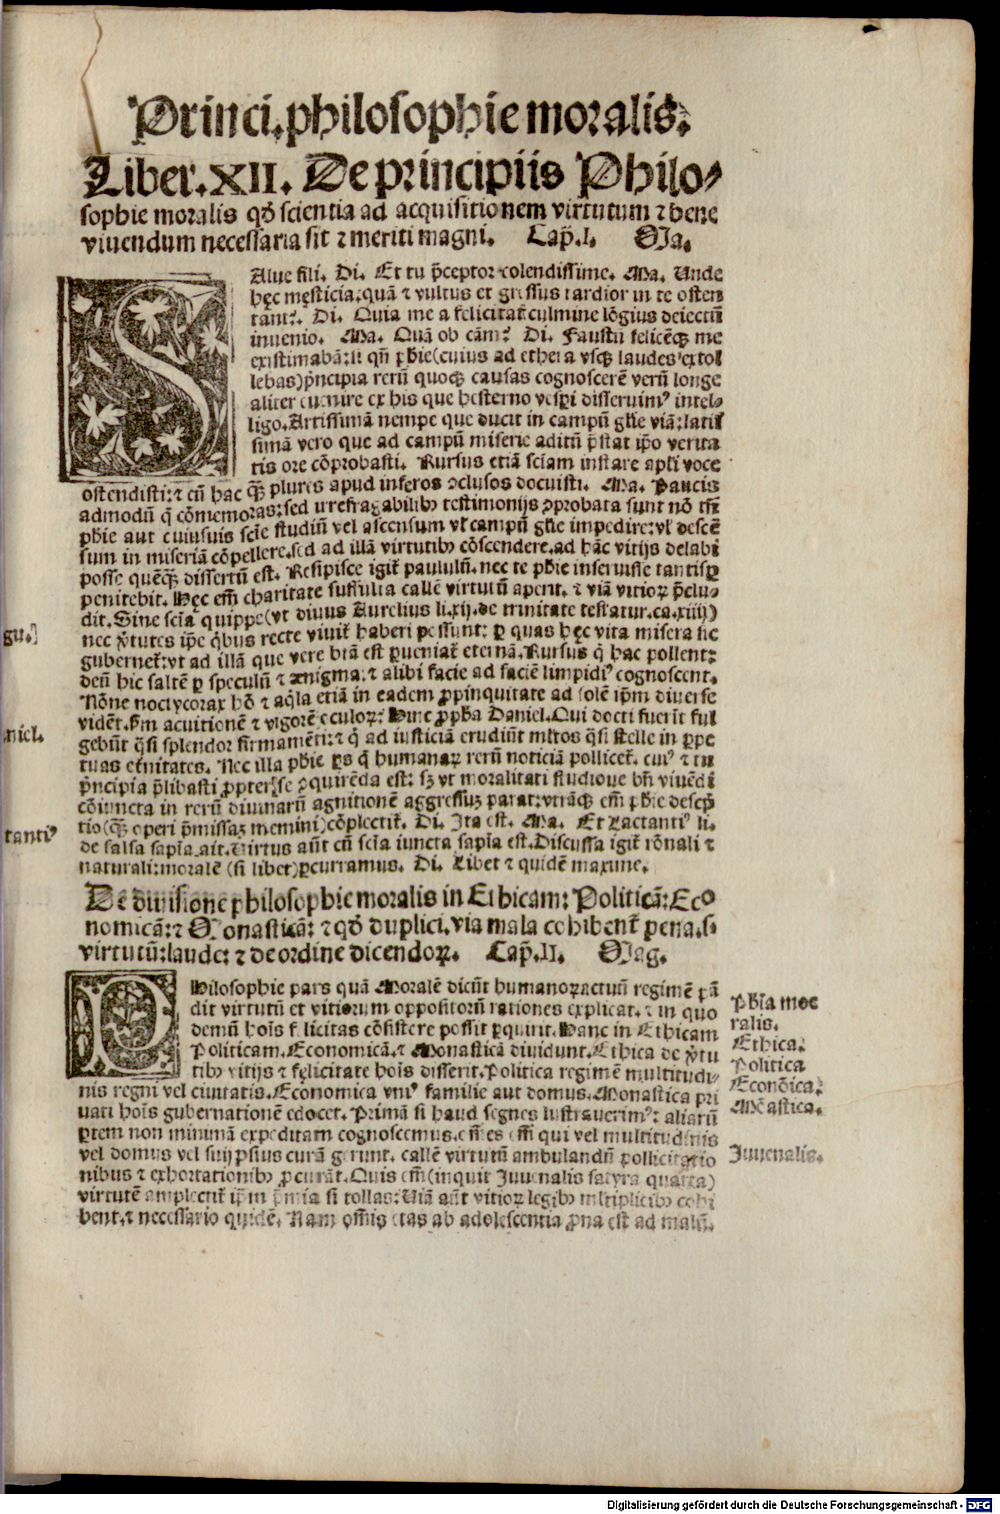 Princi. philosophie moralis.
Liber. XII. De principiis Philo⸗
sophie moralis qð scientia ad acquisitionem virtutum ⁊ bene
viuendum necessaria sit ⁊ meriti magni. Cap̃. I. Ma.
SAlue fili. Di. Et tu p̃ceptor colendissime. Ma. Unde
hęc męsticia: quã ⁊ vultus et gressus tardior in te osten
tant? Di. Quia me a felicitat̃ culmine lõgius deiectũ
inuenio. Ma. Quã ob cãm? Di. Faustũ felicẽqꝫ me
existimabã: si qñ phie (cuius ad ethera vsqꝫ laudes extol
lebas) p̃ncipia rerũ quoqꝫ causas cognoscerẽ verũ longe
aliter euenire ex his que hesterno vesp̃i disseruimꝰ intel⸗
ligo. Artissimã nempe que ducit in campũ gl̃ie viã: latis
simã vero que ad campũ miserie aditũ p̃stat ip̃o verita
tis ore cõprobasti. Rursus etiã sciam instare apl̃i voce
ostendisti: ⁊ cũ hac qꝫ plures apud inferos ꝯclusos docuisti. Ma. Paucis
admodũ q̃ cõmemoras: sed irrefragabilibꝰ testimonijs ꝓprobata sunt nõ tñ
phie aut cuiusuis sciẽ studiũ vel ascensum vl̃ campũ gl̃ie impedire: vl̃ descẽ
sum in miseriã cõpellere. sed ad illã virtutibꝰ cõscendere. ad hãc vitijs delabi
posse quẽqꝫ dissertũ est. Resipisce igit̃ paululũ. nec te phie inseruisse tantisꝑ
penitebit. Hęc em̃ charitate suffulta callẽ virtutũ aperit. ⁊ viã vitioꝝ p̃clu⸗
dit. Sine scia quippe (vt diuus Aurelius li. xij. de trinitate testatur. ca. xiiij)
nec v̾tutes ip̃e q̃bus recte viuit̃ haberi possunt: ꝑ quas hęc vita misera sic
gubernet̃: vt ad illã que vere bĩa est ꝑueniat̃ eternã. Rursus q̃ hac pollent:
deũ hic saltẽ ꝑ speculũ ⁊ ænigma: ⁊ alibi facie ad faciẽ limpidiꝰ cognoscent.
Nõne noctycorax hõ ⁊ aq̃la etiã in eadem ꝓpinquitate ad solẽ ip̃m diuerse
vidẽt. s̃m acuitionẽ ⁊ vigorẽ oculoꝝ? Hinc ꝓpha Daniel. Qui docti fuerĩt ful
gebũt q̃si splendor firmamẽti: ⁊ q̃ ad iusticiã erudiũt ml̃tos q̃si stelle in ꝑpe
tuas etñitates. Nec illa phie ꝑs q̃ humanaꝝ rerũ noticiã pollicet̃. cuiꝰ ⁊ tu
p̃ncipia p̃libasti ꝓpter se ꝑquirẽda est: sꝫ vt moralitati studioue bñ viuẽdi
cõiuncta in rerũ diuinarũ agnitionẽ aggressuꝝ parat: vtrãqꝫ em̃ phie descp̃
tio (qꝫ operi p̃missaꝝ memini) cõplectit̃. Di. Ita est. Ma. Et Lactantiꝰ li.
de falsa sapĩa. ait. Virtus aũt cũ scĩa iuncta sapĩa est. Discussa igit̃ rõnali ⁊
naturali: moralẽ (si libet) ꝑcurramus. Di. Libet ⁊ quidẽ maxime.
De diuisione philosophie moralis in Ethicam: Politicã: Eco
nomicã: ⁊ Monasticã: ⁊ qð duplici. via mala cohibent̃ pena. s.
virtutũ: laude: ⁊ de ordine dicendoꝝ. Cap̃. II. Mag.
PHilosophie pars quã Moralẽ dicũt humanoꝝ actuũ regimẽ pã
dit virtutũ et vitiorum oppositorũ rationes explicat. ⁊ in quo
demũ hoĩs felicitas cõsistere possit ꝑquirit. Hanc in Ethicam
Politicam. Economicã. ⁊ Monasticã diuidunt. Ethica de v̾tu
tibꝰ vitijs ⁊ fęlicitate hoĩs disserit. Politica regimẽ multitudi⸗
nis regni vel ciuitatis. Economica vniꝰ familie aut domus. Monastica pri
uati hoĩs gubernationẽ edocet. Primã si haud segnes lustrauerimꝰ: aliarũ
ꝑtem non minimã expeditam cognoscemus. om̃es em̃ qui vel multitudinis
vel domus vel sui ip̃sius curã gerunt. callẽ virtutũ ambulandũ pollicitatio
nibus ⁊ exhortationibꝰ ꝓcurãt. Quis em̃ (inquit Juuenalis satyra quarta)
virtutẽ amplectit̃ ip̃m p̃mia si tollas: Uiã aũt vitioꝝ legibꝰ ml̃tiplicibꝰ cohi
bent. ⁊ necessario quidẽ. Nam om̃is etas ab adolescentia ꝓna est ad malũ.
gu.
niel.
tantiꝰ
Phĩa mor
ralis.
Ethica.
Politica
Econõica.
Mõastica.
Juuenalis.
Digitalisierung gefördert durch die Deutsche Forschungsgemeinschaft - DFG